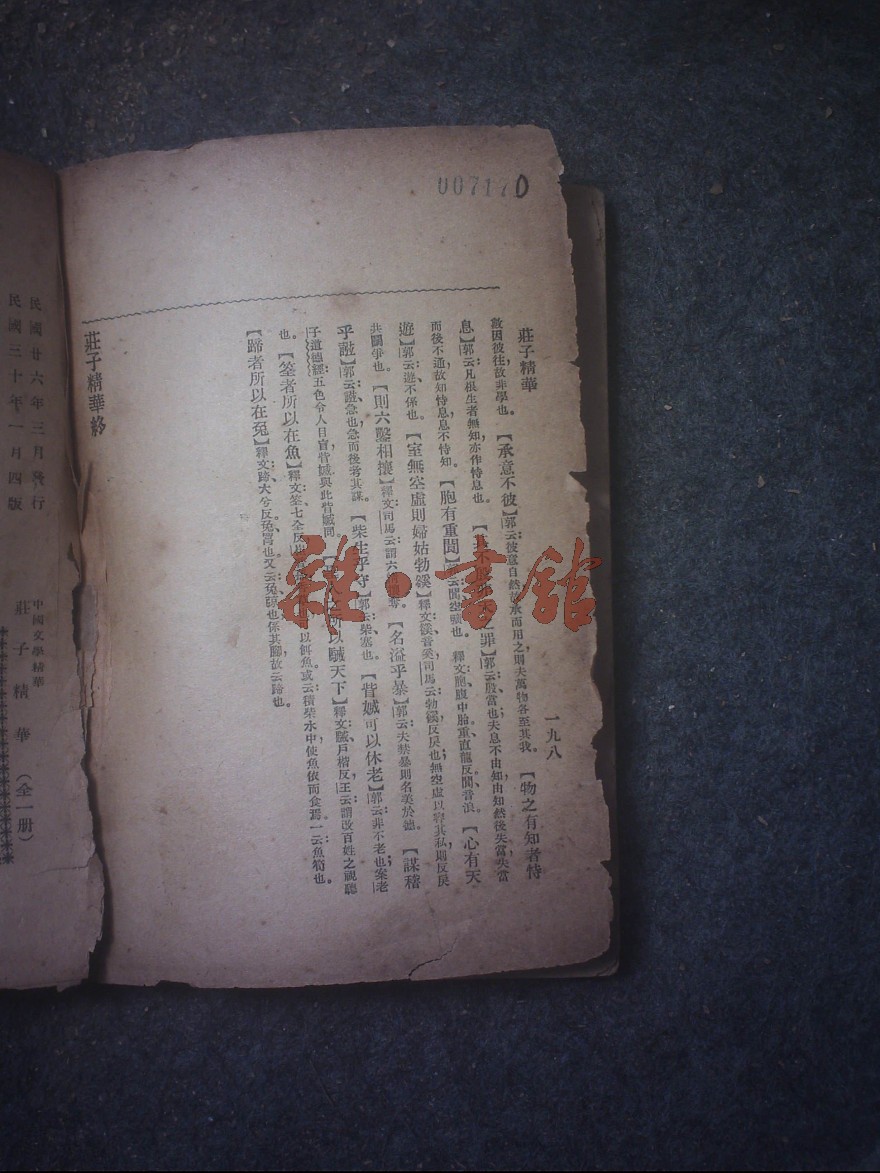 007170
莊子精華
一九八
敵因彼往故非學也。【承意不彼】郭云:彼意自然故承而用之則夫萬物各至其我。【物之有知者恃
息】郭云:凡根生者無知亦作恃息也。不殷罪】郭云:殷當也夫息不由知由知然後失當失當
而後不通故知恃息息不恃知。【胞有重閬】云閬空曠也。釋文胞、腹中胎重直龍反閬音浪。【心有天
遊】郭云:遊不係也。【室無空虛則婦姑勃豀】釋文豀音奚司馬云勃豀反戾也;無空虛以容其私則反戾
共鬭爭也。【則六鑿相攘】釋文:司馬云:謂六奪。【名溢乎暴】郭云:夫禁暴則名美於德。【謀稽
乎誸】郭云:誸急也急而後考其謀。【柴生乎守】郭云:柴塞也。【眥搣可以休老】郭云:非不老也案老
子道德經:五色令人目盲眥搣與此眥搣同【所以駴天下】釋文:駴戶楷反王云:謂改百姓之視聽
也。【筌者所以在魚】釋文筌七全反以餌魚或云:積柴水中使魚依而食焉一云:魚笱也。
【蹄者所以在兔】釋文:蹄、大兮反兔罥也又云:兔弶也係其腳故云蹄也。
莊子精華終
民國廿六年三月發行
民國三十年一月四版
中國文學精華
莊子精華(全一册)
雜·書館